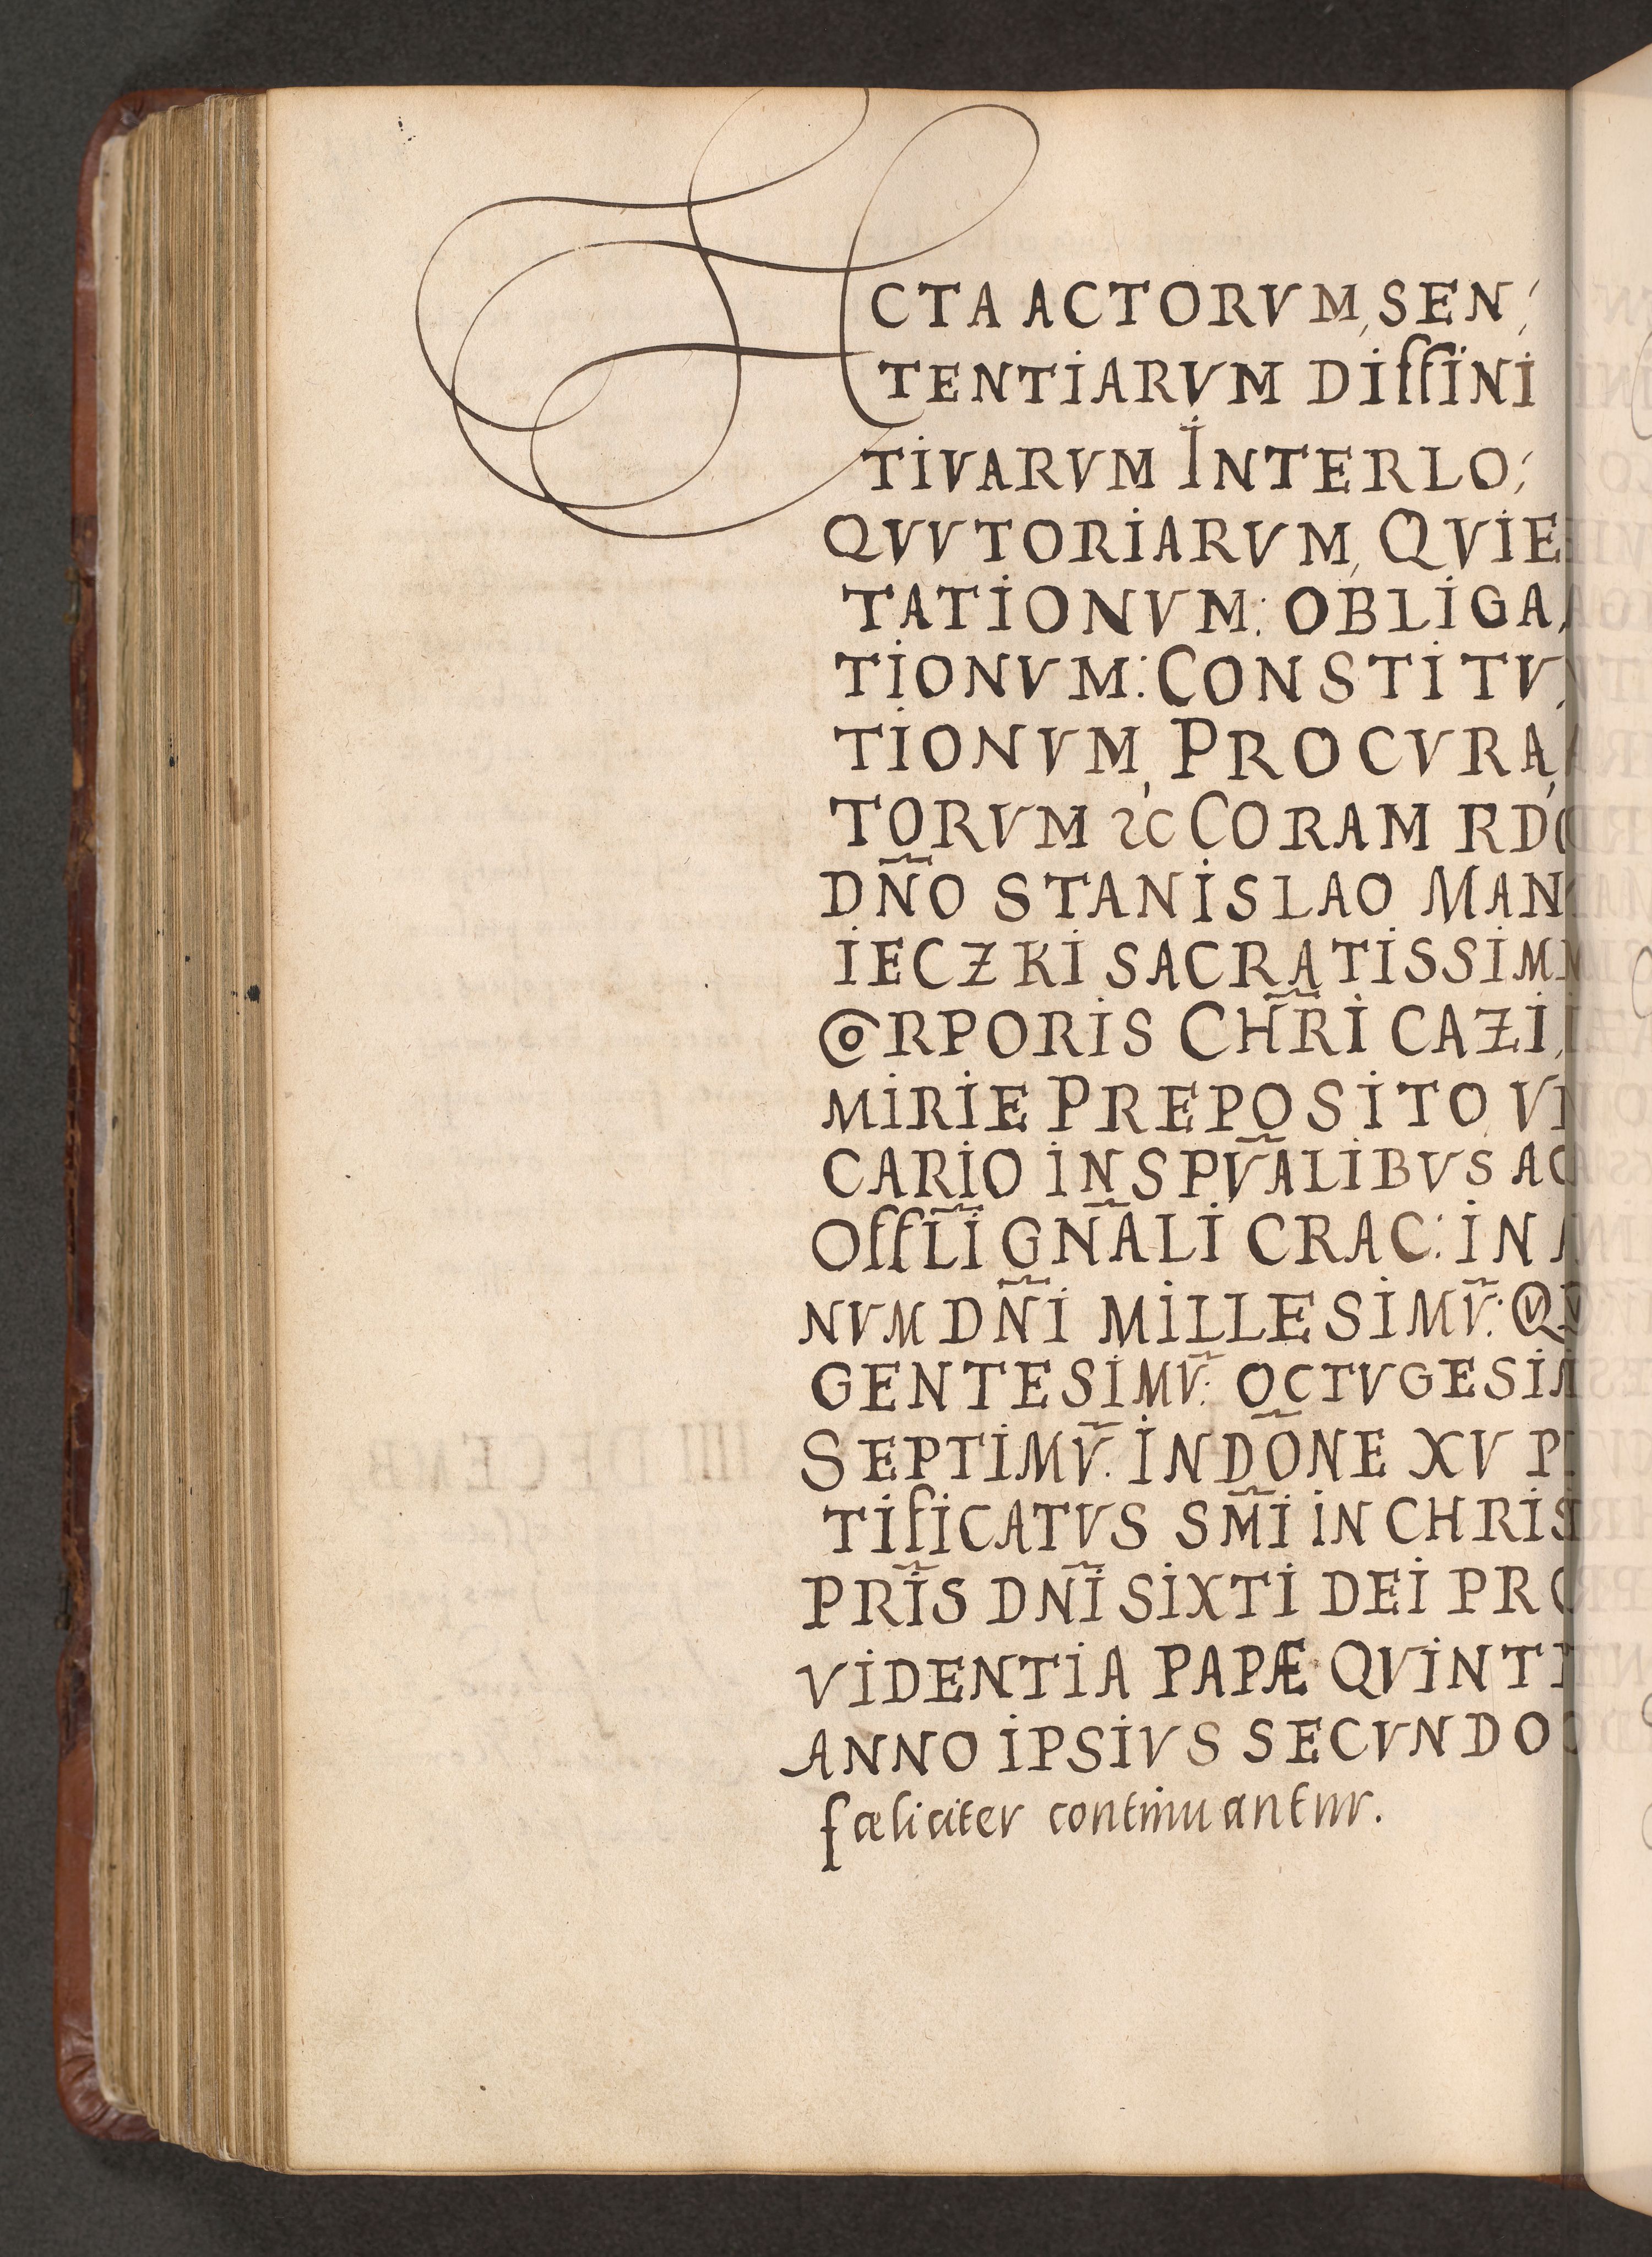 ACTA ACTORVM, SEN,
TENTIARVM DIffINI
TIVARVM INTERLO,
QVVTORIARVM, QVIE
TATIONVM: OBLIGA,
TIONVM: CONSTITV,
TIONVM, PROCVRA,
TORVM &C CORAM RDO
DÑO STANISLAO MAN
IECZKI SACRATISSIM
CORPORIS CHR̃I CAZI,
MIRIE PREPOSITO, VI
CARIO IN SPṼALIBVS AC
OffL̃I GÑALI CRAC: IN
NVM DÑI MILLESIMṼ: QV
GENTESIMṼ: OCTVGESIM
SEPTIMṼ. INDÕNE XV P
TIfICATVS SM̃I IN CHRIS
PRĨS DÑI SIXTI DEI PRO
VIDENTIA PAPÆ QVINTI
ANNO IPSIVS SECVNDO
fæliciter continuantur.